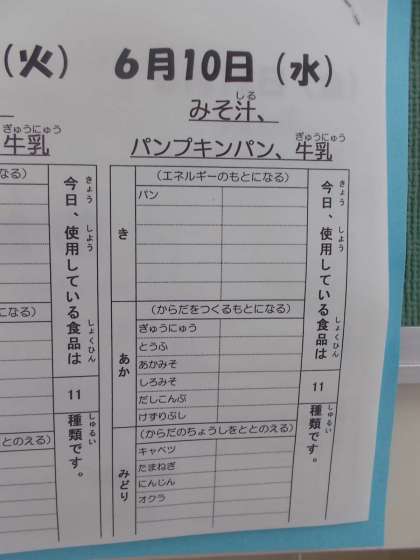 （火）
ぎゅうにゅう
牛乳
なる）
になる）
ととのえる）
きょう しよう しょくひん
今日、使用している食品は
11
しゅるい
種類です。
6月10日（水）
しる
みそ汁、
ぎゅうにゅう
パンプキンパン、牛乳
き
（エネルギーのもとになる）
パン
あか
（からだをつくるもとになる）
ぎゅうにゅう
とうふ
あかみそ
しろみそ
だしこんぶ
けずりぶし
みどり
（からだのちょうしをととのえる）
キャベツ
たまねぎ
にんじん
オクラ
きょう しよう しょくひん
今日、使用している食品は
11
しゅるい
種類です。